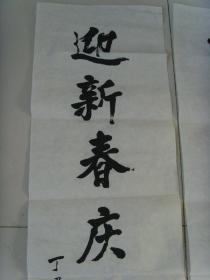 迎新春庆
丁